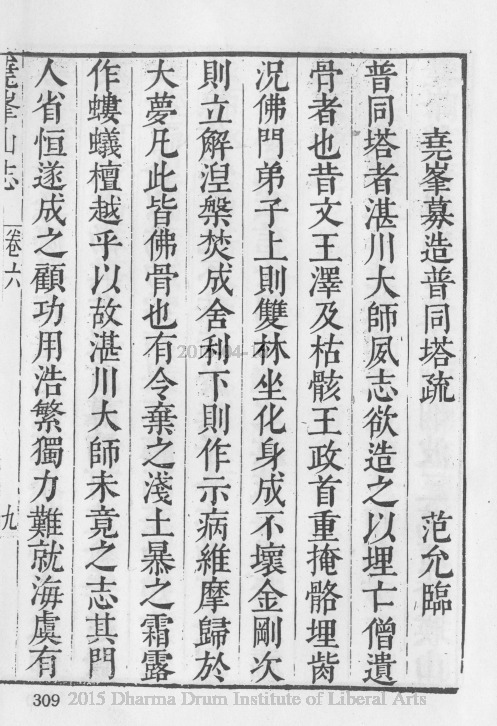 堯峯募造普同塔疏　范允臨
普同塔者湛川大師夙志欲造之以埋亡僧遺
骨者也昔文王澤及枯骸王政首重掩骼埋胔
況佛門弟子上則雙林坐化身成不壞金剛次
則立解涅槃焚成舍利下則作示病維摩歸於
大夢凡此皆佛骨也有令棄之淺土暴之霜露
作螻蟻檀越乎以故湛川大師未竟之志其門
人省恒遂成之顧功用浩繁獨力難就海虞有
堯峯山志　卷六　九
309 2015 Dharma Drum Institute of Liberal Arts